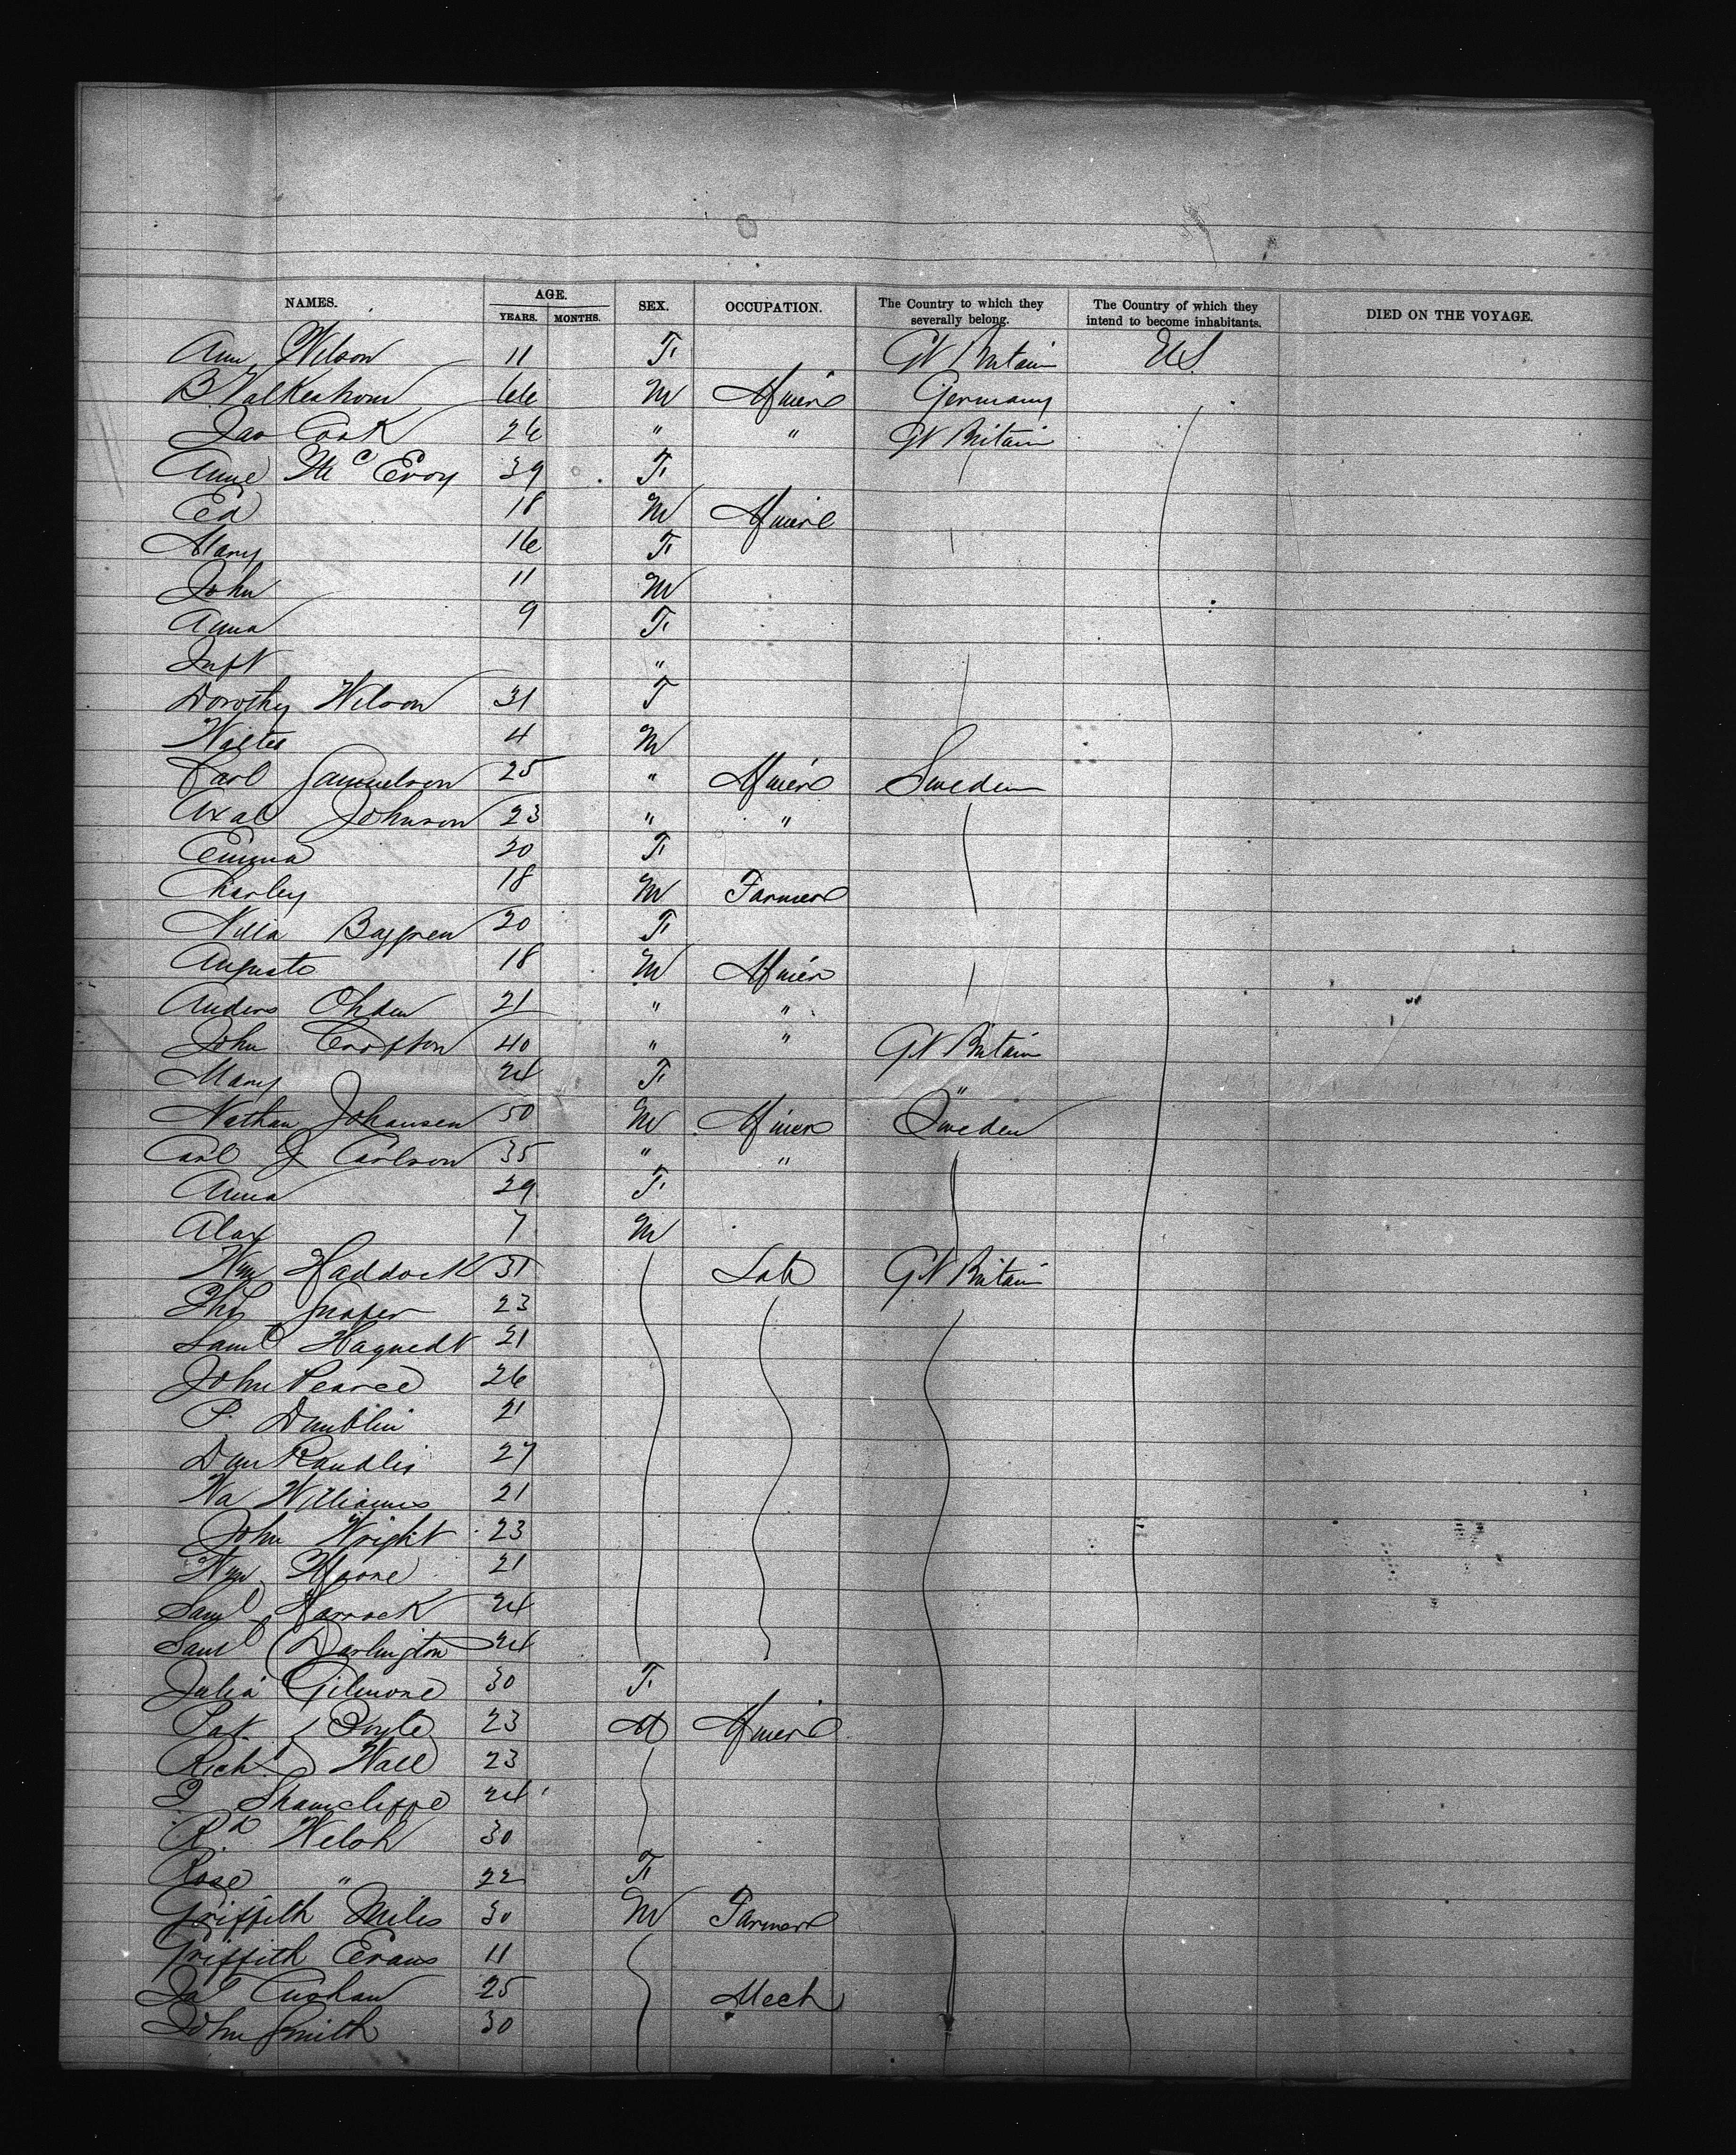 NAMES. AGE. YEARS. MONTHS. SEX. OCCUPATION. The Country to which they severally belong. The Country of which they intend to become inhabitants. DIED ON THE VOYAGE.
Ann Wilson 11 F. Gt Britain U.S.
66 M Miner Germany
Jas Cook 26 " " Gt Britain
Anne McEvoy 39 F.
Ed 18 M Miner
Mary 16 F.
John 11 M
Anna 9 F.
Inft "
Dorothy Wilson 31 F
Walter 4 M
Carl Samuelson 25 " Miner Sweden
Axal Johnson 23 " "
Emma 20 F.
Charley 18 M Farmer
Nilla 20 F.
Augusto 18 M Miner
Anders Ohden 21 " "
John Crofton 40 " " Gt Britain
Mary 24 F. "
Nathan Johansen 50 M Miner Sweden
Carl J Carlson 35 " "
Anna 29 F.
Alax 7 M
Wm Haddock 31 Lab Gt Britain
Thos 23
Saml 21
John Pearce 26
P. 21
Dan 27
Wa Williams 21
John Wright 23
Wm Moore 21
Saml 24
Saml Darlington 24
Julia Gilmore 30 F.
Pat Doyle 23 M Miner
Richd Wall 23
24
Rd Welsh 30
Rose " 22 F.
Griffith Miles 30 M Farmer
Griffith Evans 11
25 Mech
John Smith 30